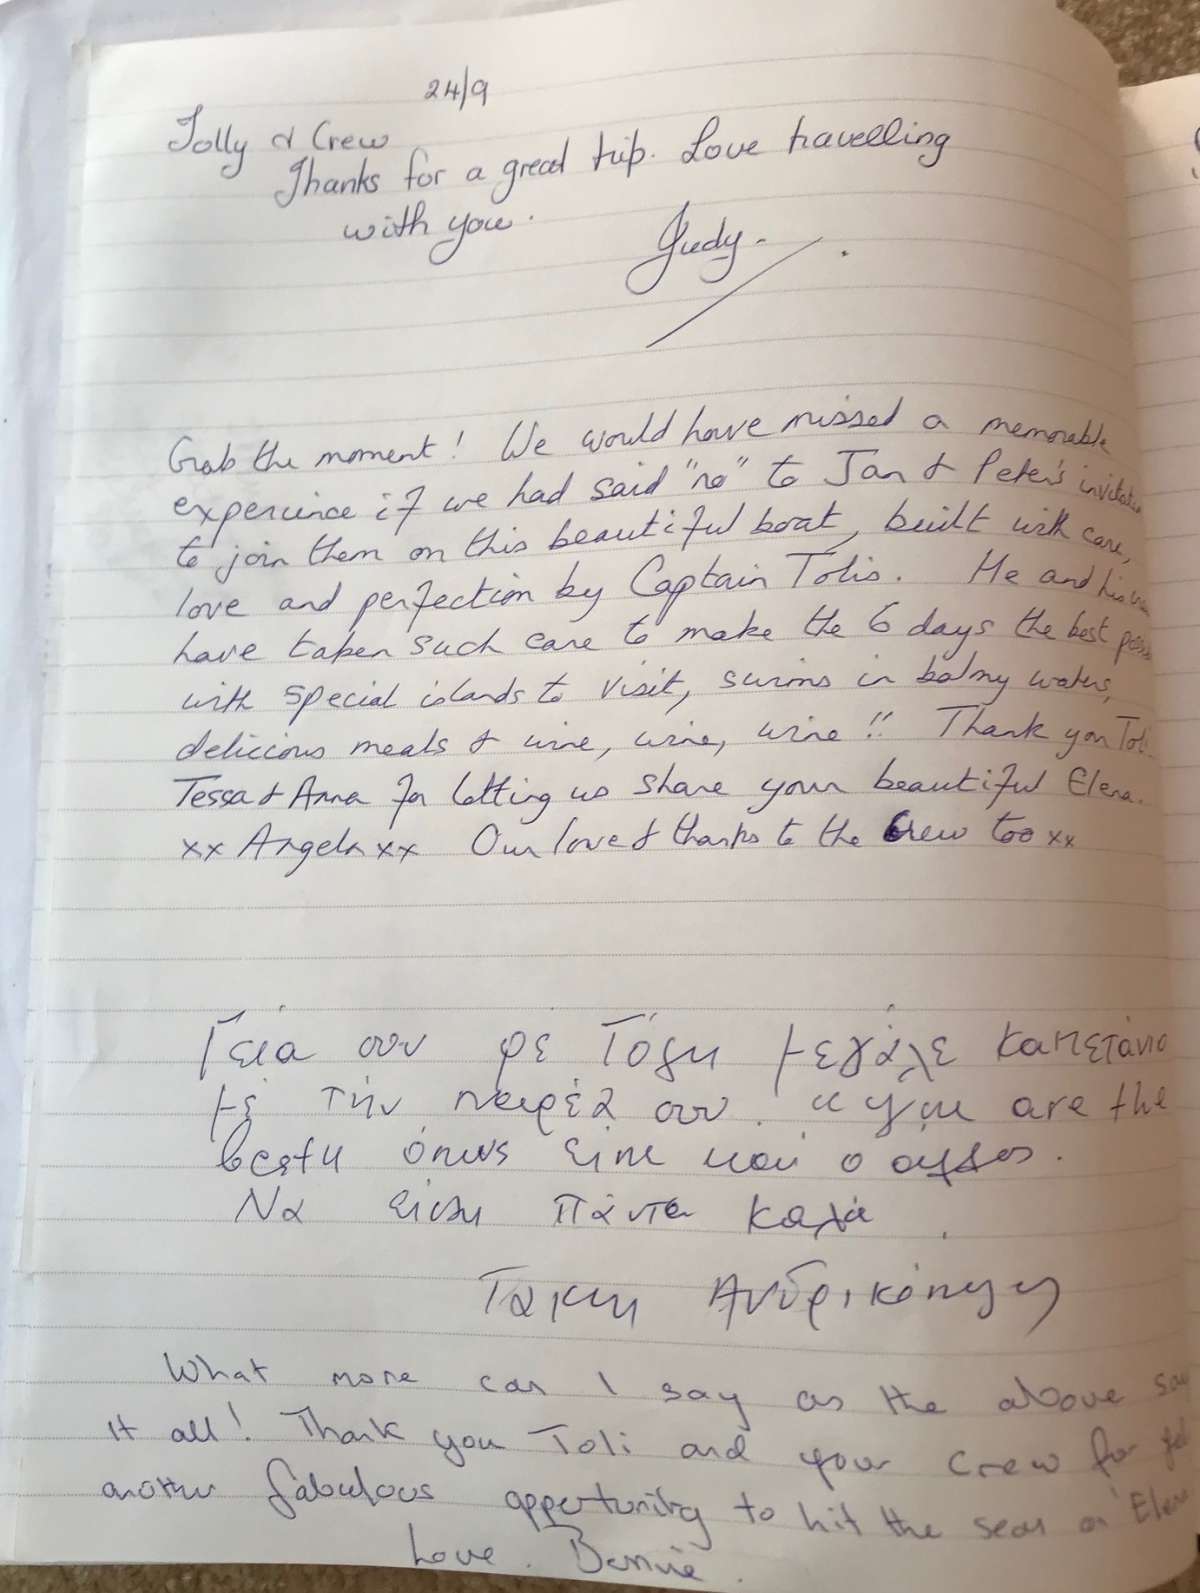 24/9
Tolly & Crew
Thanks for a great trip. Love travelling
with you.
Judy.
Grab the moment! We would have missed a memorable
experience if we had said "no" to Jan & Peter's
to join them on this beautiful boat, built with care,
love and perfection by Captain Tolis. He and his
have taken such care to make the 6 days the best
with special islands to visit, swims in balmy waters,
delicious meals & wine, wine, wine!! Thank you
Tessa & Anna for letting us share your beautiful Elena.
xx Angela xx Our love & thanks to the Crew too xx
Γειά σου ρέ Τόλη μεγάλε καπετάνιο
μέ τήν παρέα σου. are the
όπως είπε καί ο
Να είσαι πάντα καλά
Τάκης
What more can I say as the above
it all! Thank you Toli and your crew for
another fabulous opportunity to hit the seas on
Love. Bernie.